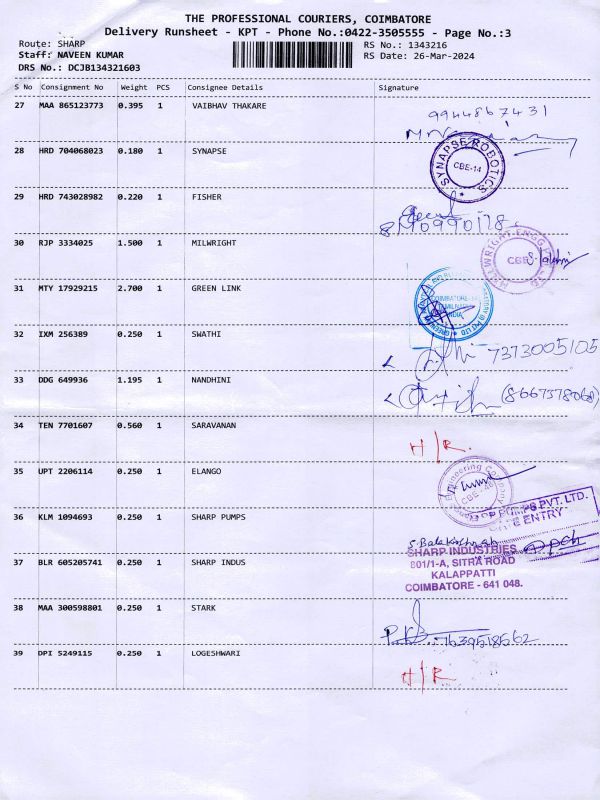 THE PROFESSIONAL COURIERS, COIMBATORE
Delivery Runsheet - KPT - Phone No.:0422-3505555 - Page No.:3
Route: SHARP
RS No.: 1343216
Staff: NAVEEN KUMAR
RS Date: 26-Mar-2024
DRS No.: DCJB134321603
S No Consignment No Weight PCS Consignee Details Signature
27 MAA 865123773 0.395 1 VAIBHAV THAKARE 9944867431
28 HRD 704068023 0.180 1 SYNAPSE SYNAPSE ROBOTICS CBE-14
29 HRD 743028982 0.220 1 FISHER
30 RJP 3334025 1.500 1 MILWRIGHT CBE
31 MTY 17929215 2.700 1 GREEN LINK COIMBATORE INDIA
32 IXM 256389 0.250 1 SWATHI 7373005105
33 DDG 649936 1.195 1 NANDHINI (8667378068)
34 TEN 7701607 0.560 1 SARAVANAN H/R.
35 UPT 2206114 0.250 1 ELANGO Engineering Company CBE
36 KLM 1094693 0.250 1 SHARP PUMPS PUMPS PVT. LTD. ENTRY
37 BLR 605205741 0.250 1 SHARP INDUS SHARP INDUSTRIES
801/1-A, SITRA ROAD
KALAPPATTI
COIMBATORE - 641 048.
38 MAA 300598801 0.250 1 STARK 7639518562
39 DPI 5249115 0.250 1 LOGESHWARI H/R